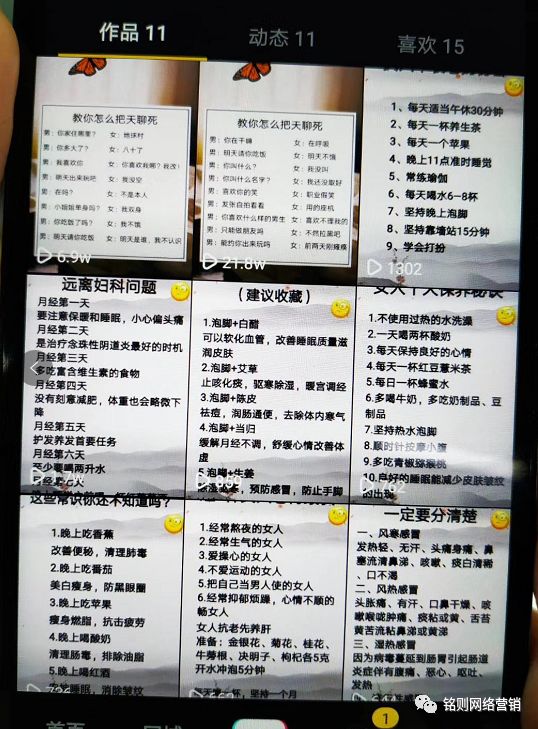 作品 11
动态 11
喜欢 15
教你怎么把天聊死
男：你家住哪里？ 女：地球村
男：你多大了？ 女：八十了
男：我喜欢你 女：你喜欢我哪？我改！
男：明天出来玩吧 女：我没空
男：在吗？ 女：不是本人
男：小姐姐单身吗？ 女：我双身
男：你吃饭了吗？ 女：我不饿
男：明天请你吃饭 女：明天是谁，我不认识
6.9w
教你怎么把天聊死
男：你在干嘛 女：在呼吸
男：明天请你吃饭 女：明天不饿
男：你叫什么？ 女：我没叫
男：你叫什么名字？ 女：我还没取好
男：喜欢你的笑 女：职业假笑
男：发张自拍看看 女：用的座机
男：你喜欢什么样的男生 女：喜欢不理我的
男：只能做朋友吗 女：不然拉黑吧
男：能约你出来玩吗 女：前两天刚瘫痪
21.8w
1、每天适当午休30分钟
2、每天一杯养生茶
3、每天一个苹果
4、晚上11点准时睡觉
5、常练瑜伽
6、每天喝水6-8杯
7、坚持晚上泡脚
8、坚持靠墙站15分钟
9、学会打扮
1302
远离妇科问题
月经第一天
要注意保暖和睡眠，小心偏头痛
月经第二天
是治疗念珠性阴道炎最好的时机
月经第三天
多吃富含维生素的食物
月经第四天
没有刻意减肥，体重也会略微下
降
月经第五天
护发养发首要任务
月经第六天
至少要喝两升水
（建议收藏）
1.泡脚+白醋
可以软化血管，改善睡眠质量滋
润皮肤
2.泡脚+艾草
止咳化痰，驱寒除湿，暖宫调经
3.泡脚+陈皮
祛痘，润肠通便，去除体内寒气
4.泡脚+当归
缓解月经不调，舒缓心情改善体
虚
5.泡脚+生姜
预防感冒，防止手脚
女人十大保养秘诀
1.不使用过热的水洗澡
2.一天喝两杯酸奶
3.每天保持良好的心情
4.每日一杯红豆薏米茶
5.每日一杯蜂蜜水
6.多喝牛奶，多吃奶制品、豆
制品
7.坚持热水泡脚
8.顺时针按摩小腹
9.多吃青椒猕猴桃
10.良好的睡眠能减少皮肤皱纹
的出现
这些常识你还不知道吗？
1.晚上吃香蕉
改善便秘，清理肺毒
2.晚上吃番茄
美白瘦身，防黑眼圈
3.晚上吃苹果
瘦身燃脂，抗击疲劳
4.晚上喝酸奶
清理肠毒，排除油脂
5.晚上喝红酒
安心睡眠，消除皱纹
1.经常熬夜的女人
2.经常生气的女人
3.爱操心的女人
4.不爱运动的女人
5.把自己当男人使的女人
6.经常抑郁烦躁，心情不顺的
畅女人
女人抗老先养肝
准备：金银花、菊花、桂花、
牛蒡根、决明子、枸杞各5克
开水冲泡5分钟
每天第一杯，坚持一个月
一定要分清楚
一、风寒感冒
发热轻、无汗、头痛身痛、鼻
塞流清鼻涕、咳嗽、痰白清稀
、口不渴
二、风热感冒
头胀痛、有汗、口鼻干燥、咳
嗽喉咙肿痛、痰粘或黄、舌苔
黄苦流粘鼻涕或黄涕
三、湿热感冒
因为病毒蔓延到肠胃引起肠道
炎症伴有腹痛、恶心、呕吐、
发热
1
铭则网络营销